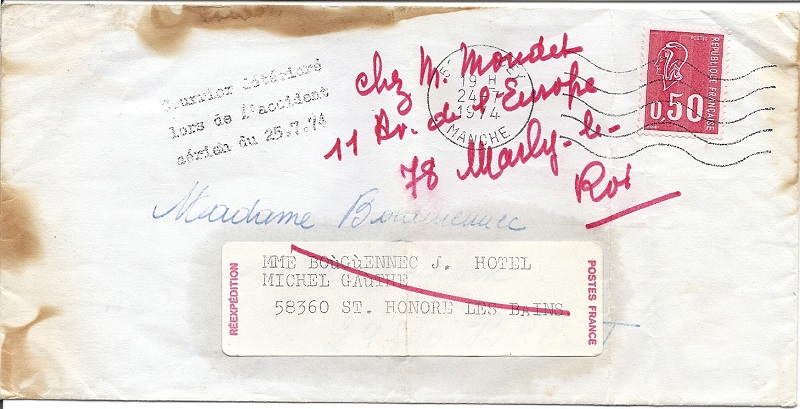 Courrier détérioré
lors de l'accident
aérien du 25.7.74
chez M. Moudet
11 Av. de l'Europe
78 Marly-le-
Roi
19 H
24-7
1974
MANCHE
POSTES
REPUBLIQUE FRANÇAISE
0,50
Madame Bouguennec
RÉEXPÉDITION
MME BOùGùENNEC J. HOTEL
MICHEL GAUTHE
58360 ST. HONORE LES BAINS
POSTES FRANCE